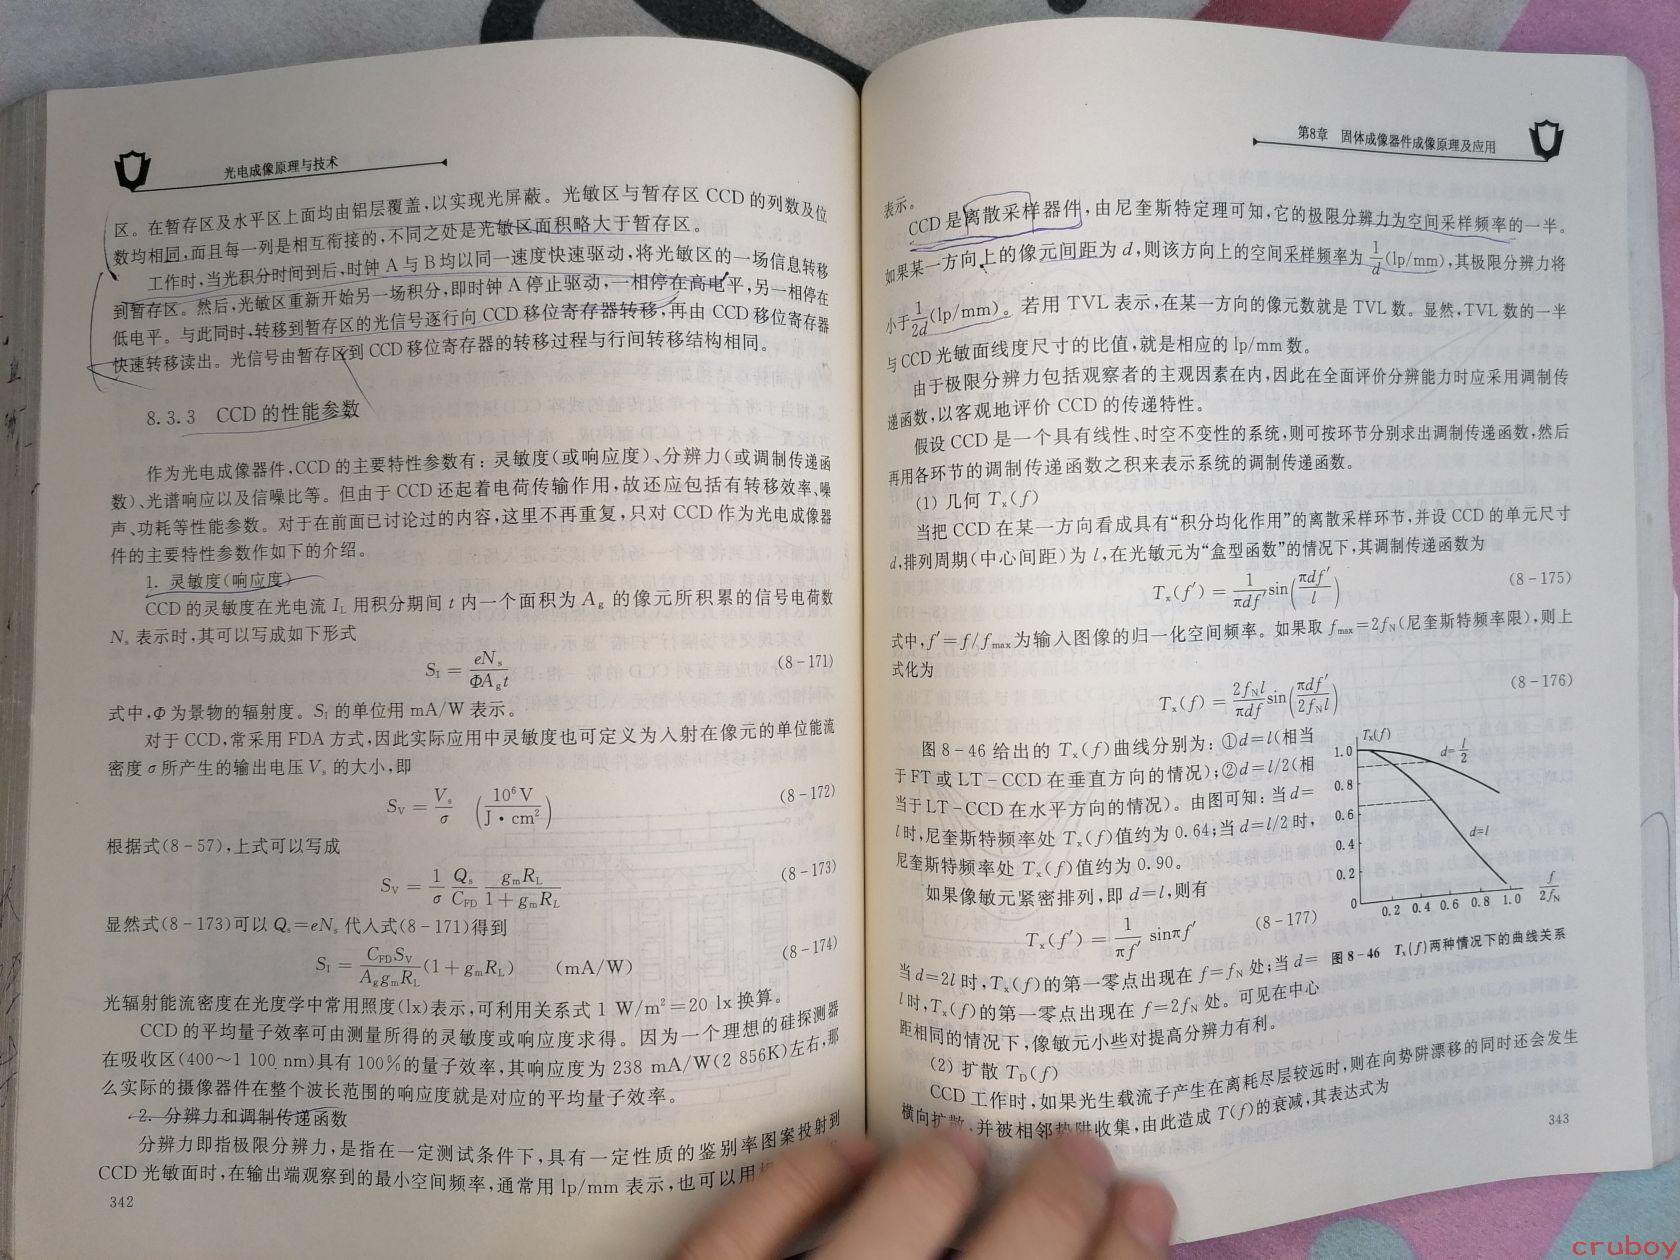 光电成像原理与技术
区。在暂存区及水平区上面均由铝层覆盖,以实现光屏蔽。光敏区与暂存区 CCD 的列数及位
数均相同,而且每一列是相互衔接的,不同之处是光敏区面积略大于暂存区。
工作时,当光积分时间到后,时钟 A 与 B 均以同一速度快速驱动,将光敏区的一场信息转移
到暂存区。然后,光敏区重新开始另一场积分,即时钟 A 停止驱动,一相停在高电平,另一相停在
低电平。与此同时,转移到暂存区的光信号逐行向 CCD 移位寄存器转移,再由 CCD 移位寄存器
快速转移读出。光信号由暂存区到 CCD 移位寄存器的转移过程与行间转移结构相同。
8.3.3 CCD 的性能参数
作为光电成像器件,CCD 的主要特性参数有:灵敏度(或响应度)、分辨力(或调制传递函
数)、光谱响应以及信噪比等。但由于 CCD 还起着电荷传输作用,故还应包括有转移效率、噪
声、功耗等性能参数。对于在前面已讨论过的内容,这里不再重复,只对 CCD 作为光电成像器
件的主要特性参数作如下的介绍。
1. 灵敏度(响应度)
CCD 的灵敏度在光电流 I_L 用积分期间 t 内一个面积为 A_g 的像元所积累的信号电荷数
N_s 表示时,其可以写成如下形式
S_I = eN_s/(ΦA_g t) (8-171)
式中,Φ 为景物的辐射度。S_I 的单位用 mA/W 表示。
对于 CCD,常采用 FDA 方式,因此实际应用中灵敏度也可定义为入射在像元的单位能流
密度 σ 所产生的输出电压 V_s 的大小,即
S_V = V_s/σ (10⁶V/(J·cm²)) (8-172)
根据式(8-57),上式可以写成
S_V = 1/σ Q_s/C_FD g_mR_L/(1+g_mR_L) (8-173)
显然式(8-173)可以 Q_s=eN_s 代入式(8-171)得到
S_I = C_FD S_V/(A_g g_m R_L)(1+g_mR_L) (mA/W) (8-174)
光辐射能流密度在光度学中常用照度(lx)表示,可利用关系式 1 W/m²=20 lx 换算。
CCD 的平均量子效率可由测量所得的灵敏度或响应度求得。因为一个理想的硅探测器
在吸收区(400~1 100 nm)具有 100%的量子效率,其响应度为 238 mA/W(2 856K)左右,那
么实际的摄像器件在整个波长范围的响应度就是对应的平均量子效率。
2. 分辨力和调制传递函数
分辨力即指极限分辨力,是指在一定测试条件下,具有一定性质的鉴别率图案投射到
CCD 光敏面时,在输出端观察到的最小空间频率,通常用 lp/mm 表示,也可以用
342
第8章 固体成像器件成像原理及应用
表示。
CCD 是离散采样器件,由尼奎斯特定理可知,它的极限分辨力为空间采样频率的一半。
如果某一方向上的像元间距为 d,则该方向上的空间采样频率为 1/d (lp/mm),其极限分辨力将
小于 1/2d (lp/mm)。若用 TVL 表示,在某一方向的像元数就是 TVL 数。显然,TVL 数的一半
与 CCD 光敏面线度尺寸的比值,就是相应的 lp/mm 数。
由于极限分辨力包括观察者的主观因素在内,因此在全面评价分辨能力时应采用调制传
递函数,以客观地评价 CCD 的传递特性。
假设 CCD 是一个具有线性、时空不变性的系统,则可按环节分别求出调制传递函数,然后
再用各环节的调制传递函数之积来表示系统的调制传递函数。
(1) 几何 T_x(f)
当把 CCD 在某一方向看成具有“积分均化作用”的离散采样环节,并设 CCD 的单元尺寸
d,排列周期(中心间距)为 l,在光敏元为“盒型函数”的情况下,其调制传递函数为
T_x(f′) = 1/(πdf′) sin(πdf′/l) (8-175)
式中,f′=f/f_max 为输入图像的归一化空间频率。如果取 f_max=2f_N(尼奎斯特频率限),则上
式化为
T_x(f) = 2f_N l/(πdf) sin(πdf′/(2f_N l)) (8-176)
图 8-46 给出的 T_x(f)曲线分别为:①d=l(相当
于 FT 或 LT-CCD 在垂直方向的情况);②d=l/2(相
当于 LT-CCD 在水平方向的情况)。由图可知:当 d=
l 时,尼奎斯特频率处 T_x(f)值约为 0.64;当 d=l/2 时,
尼奎斯特频率处 T_x(f)值约为 0.90。
如果像敏元紧密排列,即 d=l,则有
T_x(f′) = 1/(πf′) sinπf′ (8-177)
当 d=2l 时,T_x(f)的第一零点出现在 f=f_N 处;当 d=
l 时,T_x(f)的第一零点出现在 f=2f_N 处。可见在中心
距相同的情况下,像敏元小些对提高分辨力有利。
T_x(f)
1.0
0.8
0.6
0.4
0.2
0
0.2 0.4 0.6 0.8 1.0
f/2f_N
d=l/2
d=l
图 8-46 T_x(f)两种情况下的曲线关系
(2) 扩散 T_D(f)
CCD 工作时,如果光生载流子产生在离耗尽层较远时,则在向势阱漂移的同时还会发生
横向扩散,并被相邻势阱收集,由此造成 T(f)的衰减,其表达式为
343
cruboy